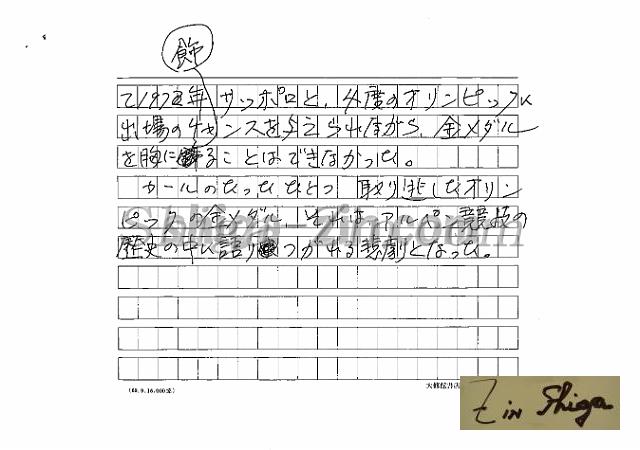 飾
て1972年サッポロと、4度のオリンピック
出場のチャンスを与えられながら、金メダル
を胸に ることはできなかった。
カールのたったひとつ取り逃したオリン
ピックの金メダル、それはアルペン競技の
歴史の中に語り つがれる悲劇となった。
Shiga-Zin.com
(60.9.16,000冊)
大修館書店
Z in Shiga